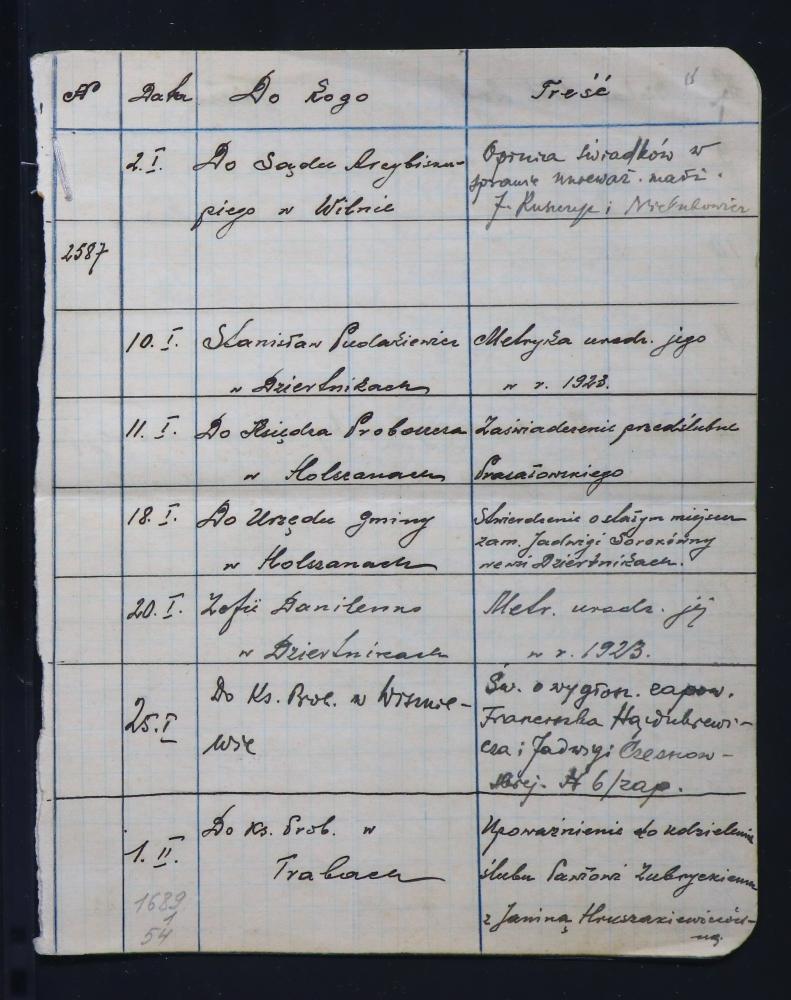 № Data Do Kogo Treść
2. I. Do Sądu Arcybisku- Opinia świadków w
piego w Wilnie sprawie unieważ. małż.
J. i
2587
10. I. Stanisław Pudakiewicz Metryka urodz. jego
w Dziertnikach w r. 1923.
11. I. Do Księdza Proboszcza Zaświadczenie przedślubne
w Holszanach
18. I. Do Urzędu Gminy Stwierdzenie o stałym miejscu
w Holszanach zam. Jadwigi Sorokówny
we wsi Dziertnikach.
20. I. Zofii Danilenko Metr. urodz. jej
w Dziertnikach w r. 1923.
25. I Do Ks. Prob. w Wisznie- Św. o wygłosz. zapow.
wie Franciszka
cza i Jadwigi Czesnow-
skiej. № 6/zap.
1. II. Do Ks. Prob. w Upoważnienie do udzielenia
Trabach ślubu Pawłowi Zubryckiemu
z Janiną Hruszakiewiczów-
ną.
1689
1
54